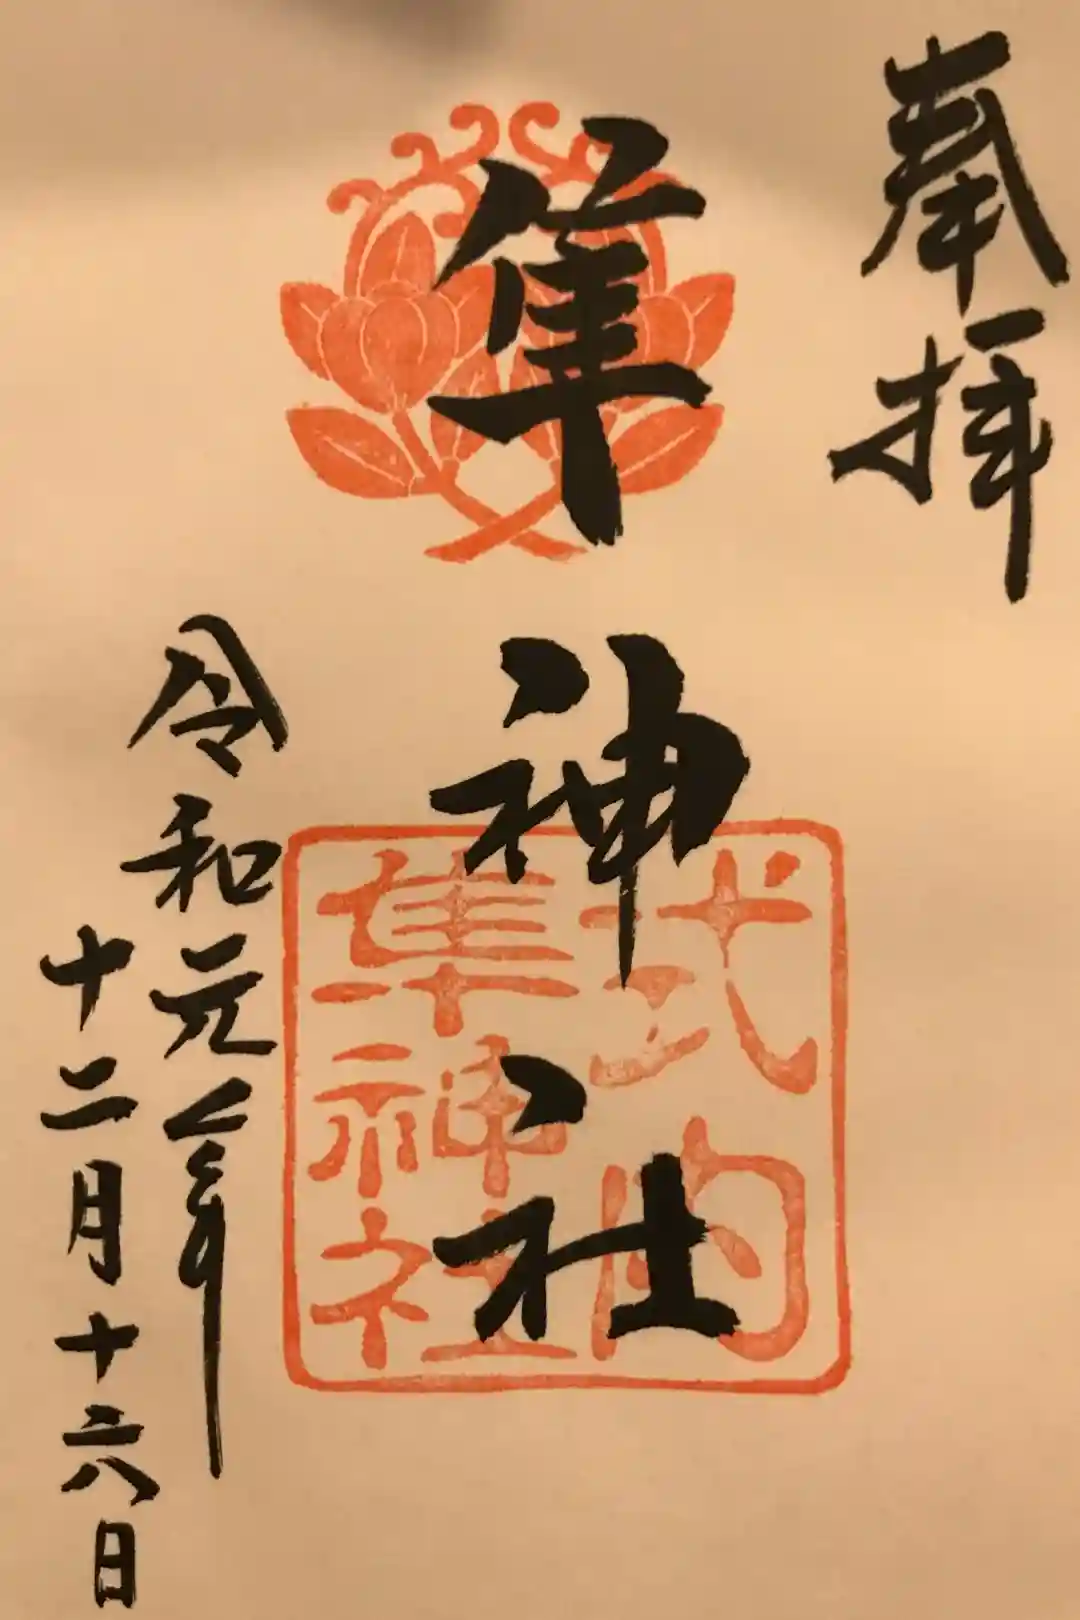 奉拝
隼神社
式内
隼神社
令和元年
十二月十六日